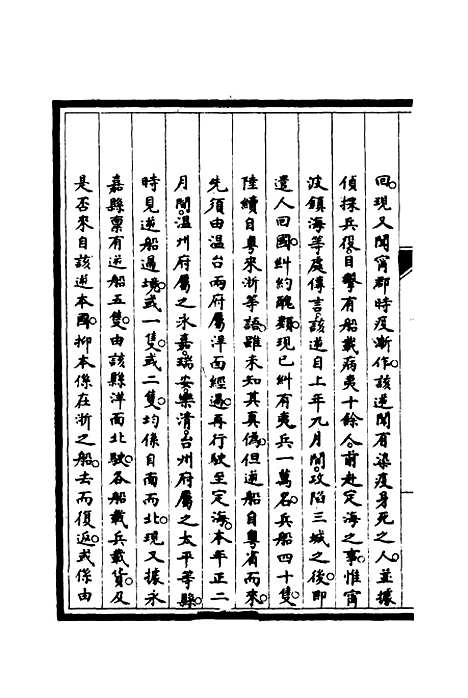 回。現又聞甯郡時疫漸作。該逆間有染疫身死之人。並據
偵探兵役。目擊有船載病夷十餘人。前赴定海之事。惟甯
波鎮海等處傳言。該逆自上年九月間。攻陷三城之後。即
遣人回國。糾約醜類。現已糾有夷兵一萬名。兵船四十隻。
陸續自粵來浙等語。雖未知其真偽。但逆船自粵省而來。
先須由溫台兩府屬洋面經過。再行駛至定海。本年正二
月間。溫州府屬之永嘉。瑞安。樂清。台州府屬之太平等縣。
時見逆船過境。或一隻。或二隻。均係自南而北。現又據永
嘉縣稟有逆船五隻。由該縣洋面北駛。各船載兵載貨。及
是否來自該逆本國。抑本係在浙之船。去而復返。或係由